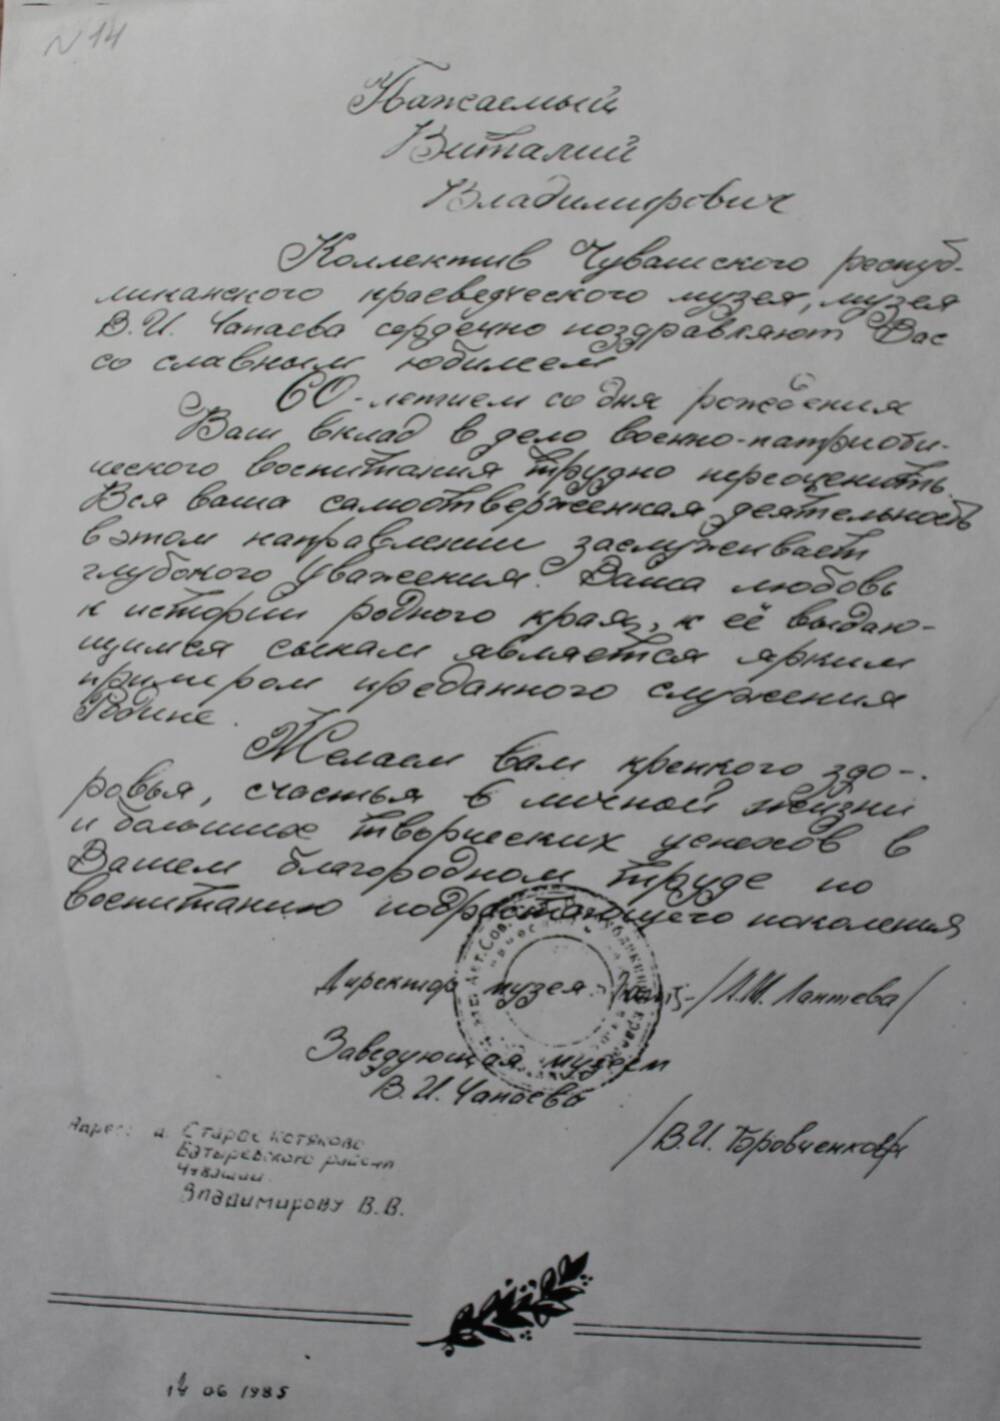 N 14
Уважаемый
Виталий
Владимирович
Коллектив Чувашского респуб-
ликанского краеведческого музея, музея
В.И. Чапаева сердечно поздравляют Вас
со славным юбилеем
60-летием со дня рождения
Ваш вклад в дело военно-патриоти-
ческого воспитания трудно переоценить.
Вся ваша самоотверженная деятельность
в этом направлении заслуживает
глубокого уважения. Ваша любовь
к истории родного края, к её выдаю-
щимся сынам является ярким
примером преданного служения
Родине.
Желаем Вам крепкого здо-
ровья, счастья в личной жизни
и больших творческих успехов в
Вашем благородном труде по
воспитанию подрастающего поколения
Директор музея /И.М. Лаптева/
Заведующая музеем
В.И. Чапаева /В.И. Бровченкова/
Адрес: д. Старое Котяково
Батыревского района
Чувашии
Владимирову В.В.
14 06 1985